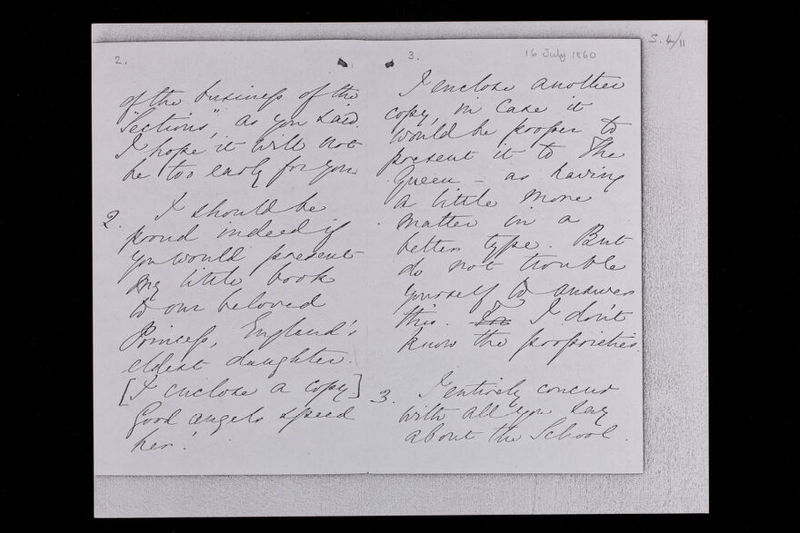 S. 4/11
2.
of the business of the
"Sections", as you said.
I hope it will not
be too early for you
2. I should be
proud indeed if
you would present
my little book
to our beloved
Princess, England's
eldest daughter.
[I enclose a copy]
Good angels speed
her!
3.
16 July 1860
I enclose another
copy, in case it
would be proper to
present it to The
Queen - as having
a little more
matter in a
better type. But
do not trouble
yourself to answer
this. I don't
know the proprieties.
3. I entirely concur
with all you say
about the School.